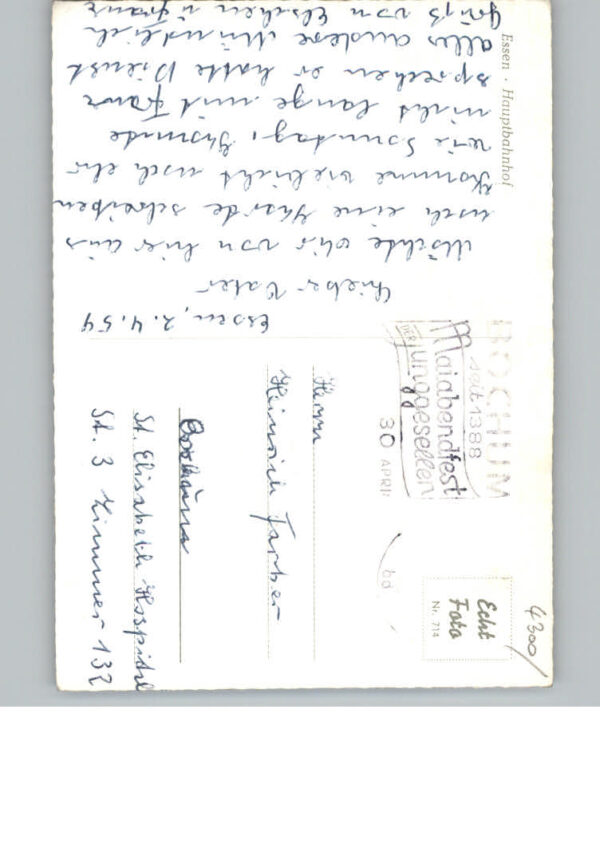 Essen · Hauptbahnhof
Essen, 2.4.54
Lieber Vater
Möchte dir von hier aus
noch eine Karde schreiben
Komme vieleicht noch ehr
wie Sonntag,
nicht lange mit Franz
sprechen er hatte Dienst
alles andere Mündlich
Gruß von Elschen u Franz
BOCHUM
seit 1388
Maiabendfest
DER
Junggesellen
30 APRIL
Echt
Foto
Nr. 714
4300/
Herrn
Heinrich Farber
Bochum
St. Elisabeth Hospital
St. 3 Zimmer 132